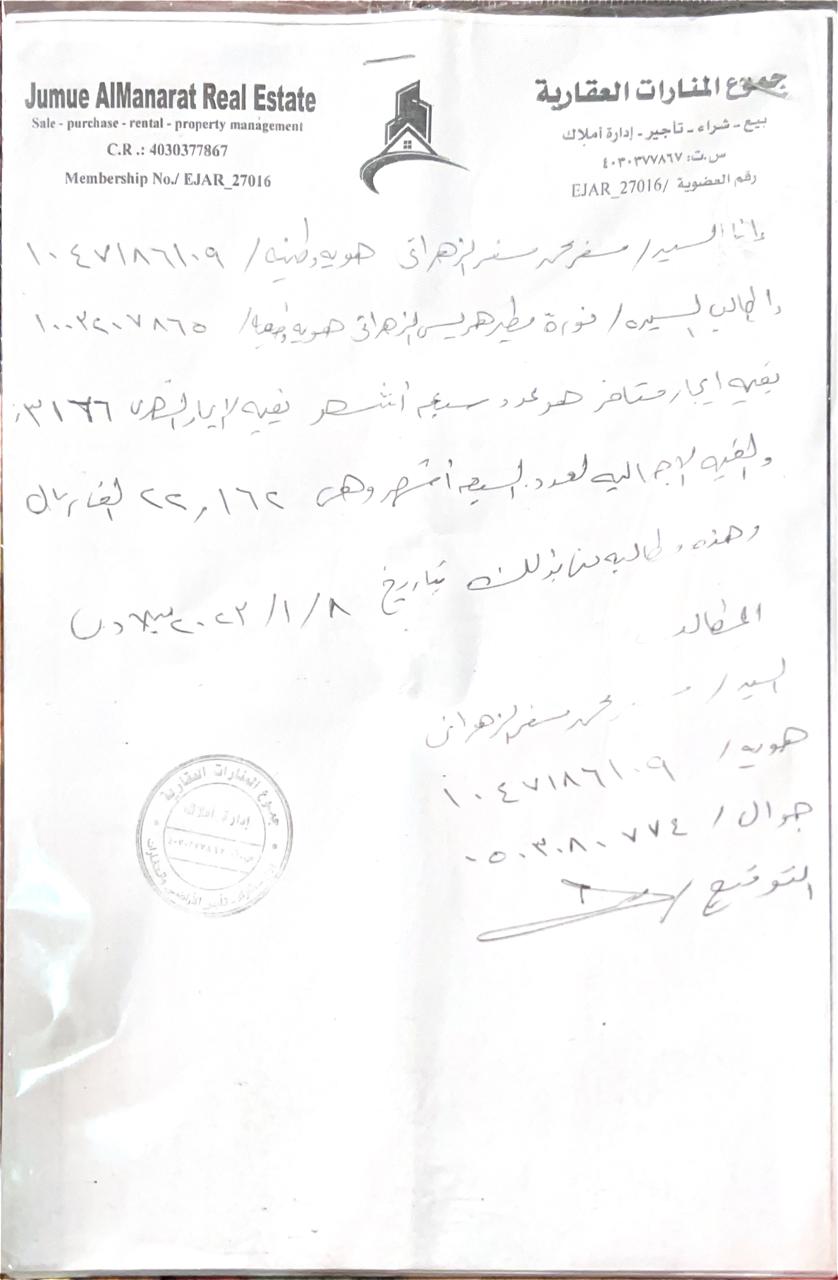 Jumue AlManarat Real Estate
Sale - purchase - rental - property management
C.R .: 4030377867
Membership No./ EJAR_27016
جموع المنارات العقارية
بيع - شراء - تأجير - إدارة أملاك
س.ت: ٤٠٣٠٣٧٧٨٦٧
رقم العضوية /EJAR_27016
وانا السيد / مسفر محمد مسفر الزهراني هويه وطنيه / ١٠٤٧١٨٦١٠٩
واطالب السيده / نوره مطير الزهراني هويه وطنيه / ١٠٠٣٢٠٧٨٦٥
بقيه ايجار متاخر هو عدد سبعه أشهر بقيه الايجار الشهري ٣١٦٦
والقيمه الإجماليه لعدد السبعه أشهر وهي ٢٢,١٦٢ الف ريال
وهذه مطالبه منا بذلك بتاريخ ٢٠٢٣/١/٨ ميلادي
السيد / محمد مسفر الزهراني
هويه / ١٠٤٧١٨٦١٠٩
جوال / ٠٥٠٣٠٨٠٧٧٤
التوقيع /
جموع المنارات العقارية
إدارة أملاك